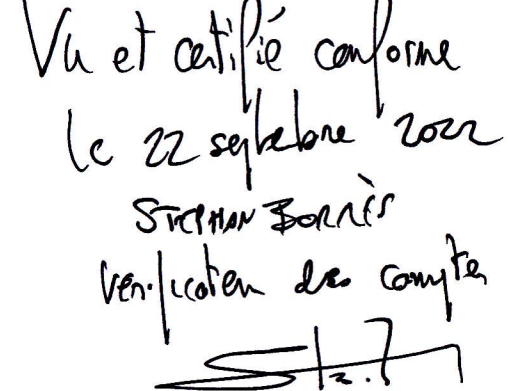 Vu et certifié conforme
le 22 septembre 2022
STEPHAN BORRÈS
Vérificateur des comptes